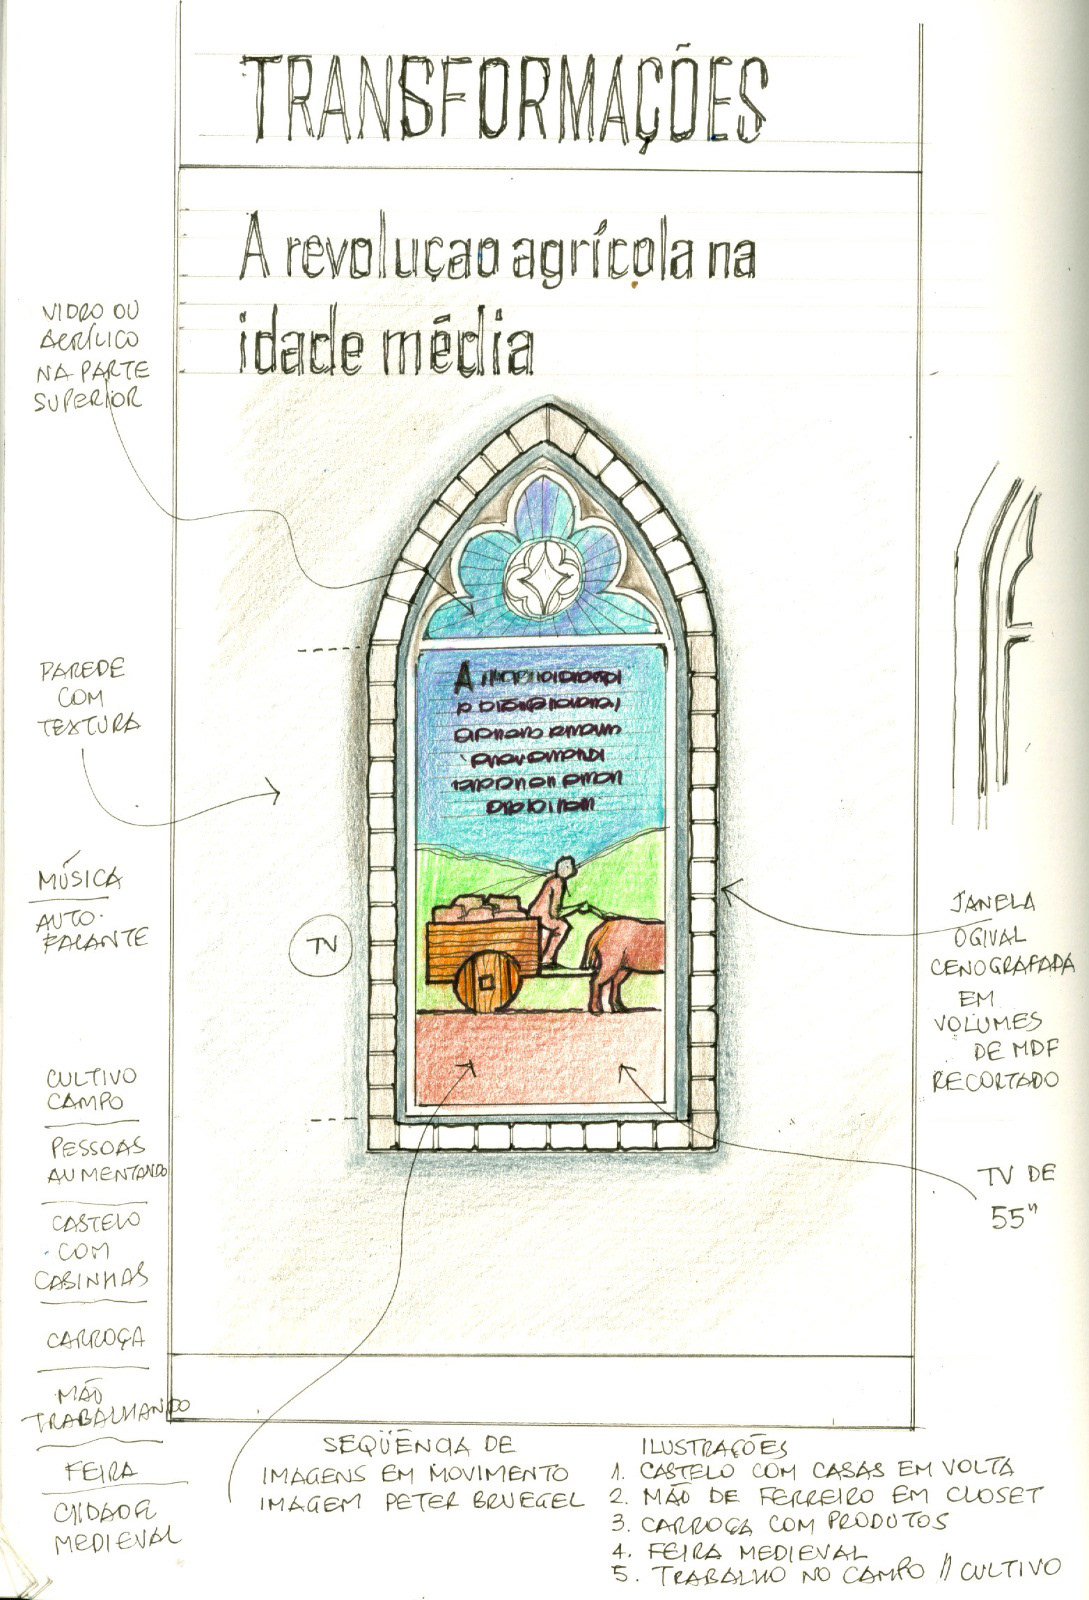 TRANSFORMAÇÕES
A revoluçao agrícola na
idade média
VIDRO OU
ACRÍLICO
NA PARTE
SUPERIOR
PAREDE
COM
TEXTURA
MÚSICA
AUTO-
FALANTE
TV
CULTIVO
CAMPO
PESSOAS
AUMENTANDO
CASTELO
COM
CASINHAS
CARROÇA
MÃO
TRABALHANDO
FEIRA
CIDADE
MEDIEVAL
A
JANELA
OGIVAL
CENOGRAFADA
EM
VOLUMES
DE MDF
RECORTADO
TV DE
55"
SEQÜÊNCIA DE
IMAGENS EM MOVIMENTO
IMAGEM PETER BRUEGEL
ILUSTRAÇÕES
1. CASTELO COM CASAS EM VOLTA
2. MÃO DE FERREIRO EM CLOSET
3. CARROÇA COM PRODUTOS
4. FEIRA MEDIEVAL
5. TRABALHO NO CAMPO // CULTIVO